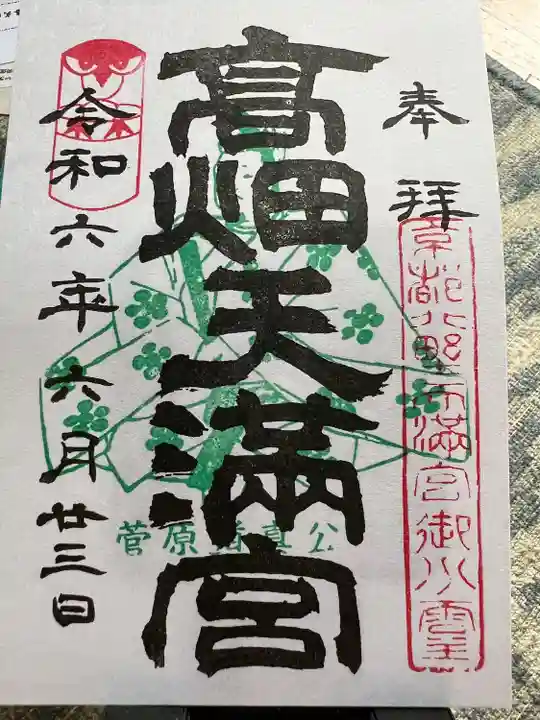 奉拝
京都北野天満宮御分霊
高畑天満宮
菅原道真公
令和六年六月廿三日